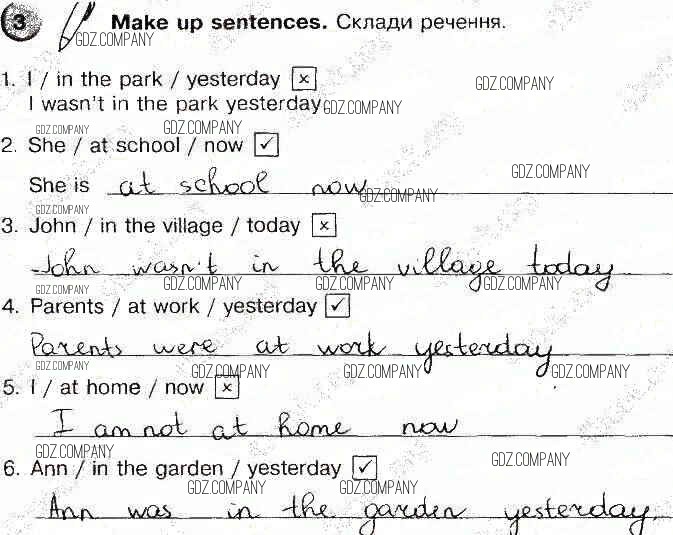 3 Make up sentences. Склади речення.
GDZ.COMPANY
1. I / in the park / yesterday x
GDZ.COMPANY
I wasn't in the park yesterday
GDZ.COMPANY
GDZ.COMPANY GDZ.COMPANY
2. She / at school / now ✓
GDZ.COMPANY
She is at school now
GDZ.COMPANY
GDZ.COMPANY
3. John / in the village / today x
John wasn't in the village today
GDZ.COMPANY GDZ.COMPANY GDZ.COMPANY GDZ.COMPANY
4. Parents / at work / yesterday ✓
Parents were at work yesterday
GDZ.COMPANY GDZ.COMPANY GDZ.COMPANY GDZ.COMPANY
5. I / at home / now x
I am not at home now
GDZ.COMPANY
GDZ.COMPANY
6. Ann / in the garden / yesterday ✓
GDZ.COMPANY GDZ.COMPANY
Ann was in the garden yesterday.